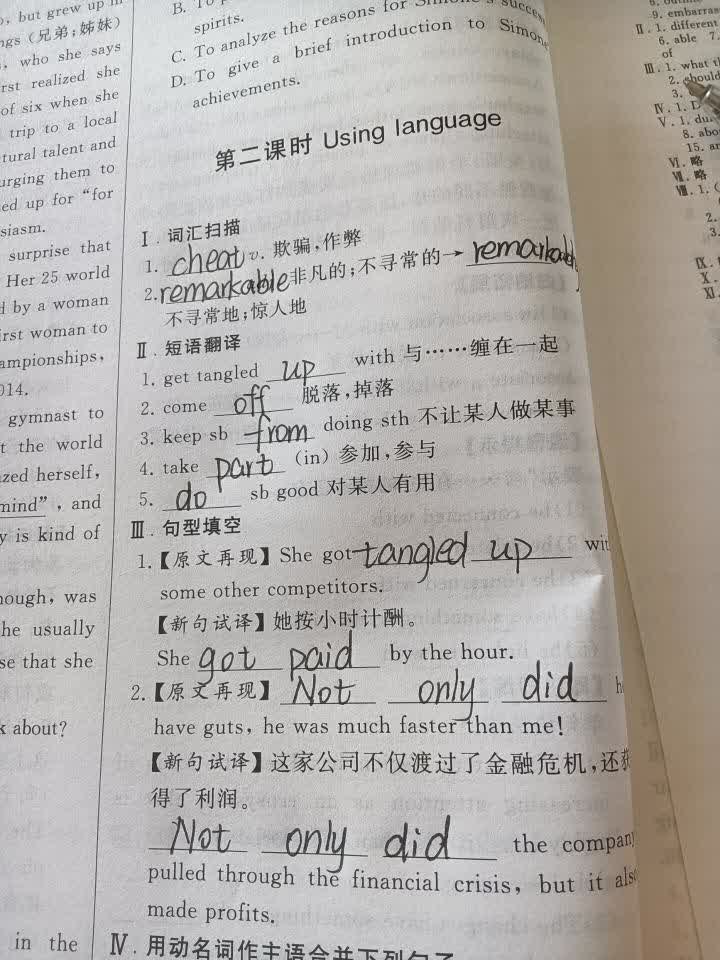 , but grew up in
ngs (兄弟;姊妹)
, who she says
rst realized she
of six when she
trip to a local
tural talent and
urging them to
ed up for “for
siasm.
surprise that
Her 25 world
d by a woman
irst woman to
ampionships,
014.
gymnast to
t the world
zed herself,
mind”, and
y is kind of
hough, was
he usually
se that she
k about?
in the
B. To
spirits.
C. To analyze the reasons for Simone's success
D. To give a brief introduction to Simone
achievements.
第二课时 Using language
Ⅰ. 词汇扫描
1. cheat v. 欺骗,作弊
2. remarkable 非凡的;不寻常的→ remarkab
不寻常地;惊人地
Ⅱ. 短语翻译
1. get tangled up with 与……缠在一起
2. come off 脱落,掉落
3. keep sb from doing sth 不让某人做某事
4. take part (in) 参加,参与
5. do sb good 对某人有用
Ⅲ. 句型填空
1.【原文再现】She got tangled up wit
some other competitors.
【新句试译】她按小时计酬。
She got paid by the hour.
2.【原文再现】Not only did h
have guts, he was much faster than me!
【新句试译】这家公司不仅渡过了金融危机,还获
得了利润。
Not only did the company
pulled through the financial crisis, but it also
made profits.
Ⅳ. 用动名词作主语合并下列句子
9. embarras
Ⅱ. 1. different
6. able 7.
of
Ⅲ. 1. what t
2. should
3.
Ⅳ. 1. D
Ⅴ. 1. du
8. abo
15. ar
Ⅵ. 略
Ⅶ. 略
Ⅷ. 1. (
2.
3.
Ⅸ.
Ⅹ.
Ⅺ.